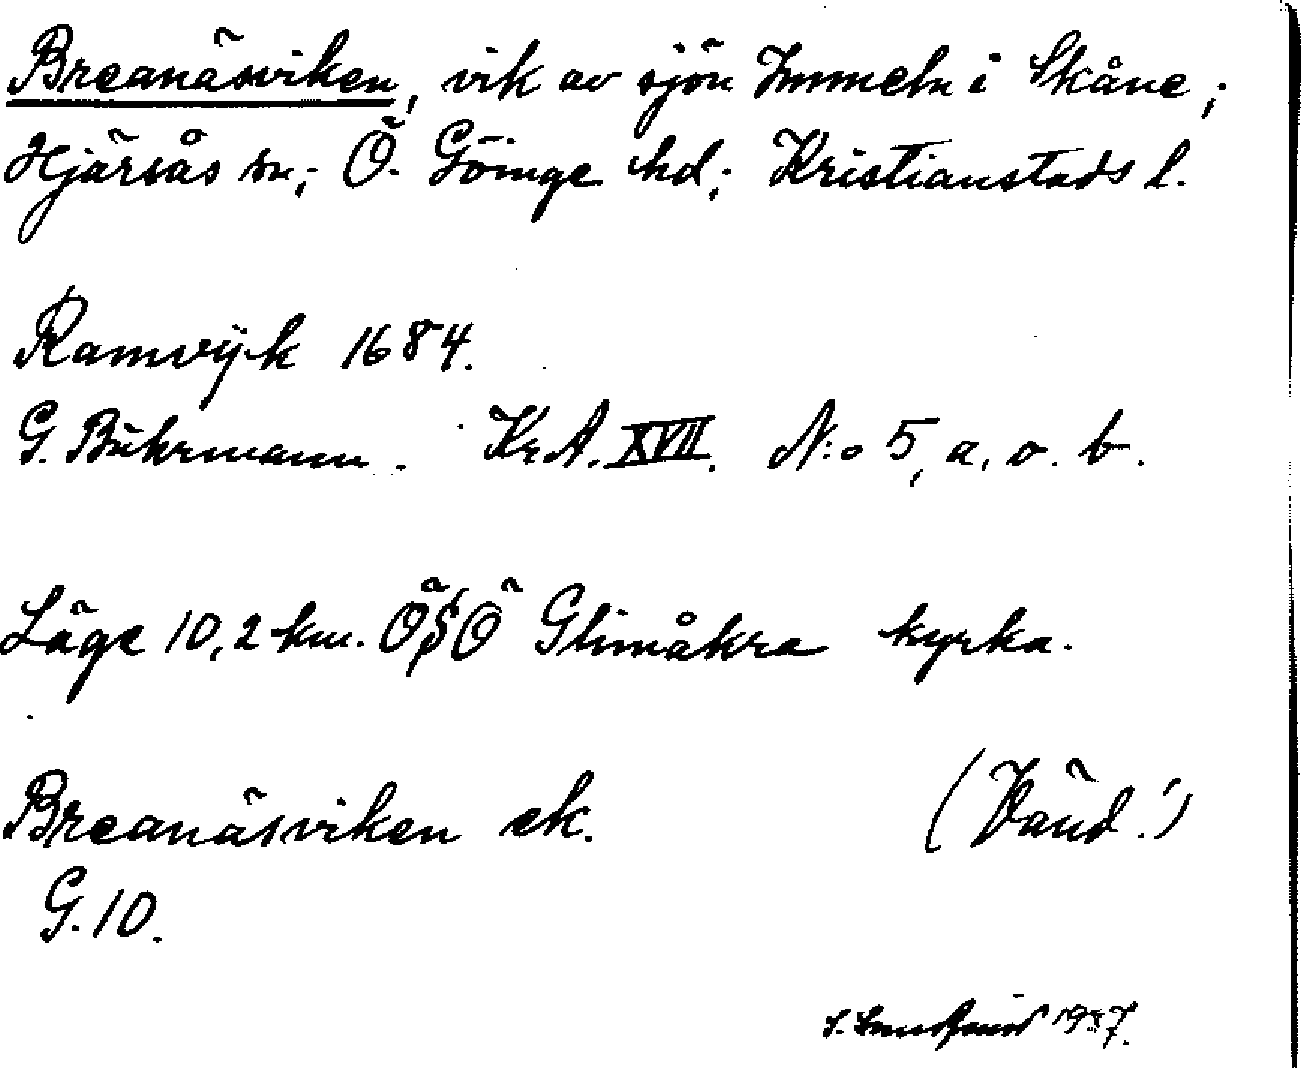 Breanäsviken, vik av sjön Immeln i Skåne;
Hjärsås sn; Ö. Göinge hd; Kristianstads l.
Ramvÿk 1684.
G. Buhrmann. Kr.A. XVII. N:o 5, a. o. b.
Läge 10,2 km. ÖSÖ Glimåkra kyrka.
Breanäsviken ek. (Vänd!)
G. 10.
1937.